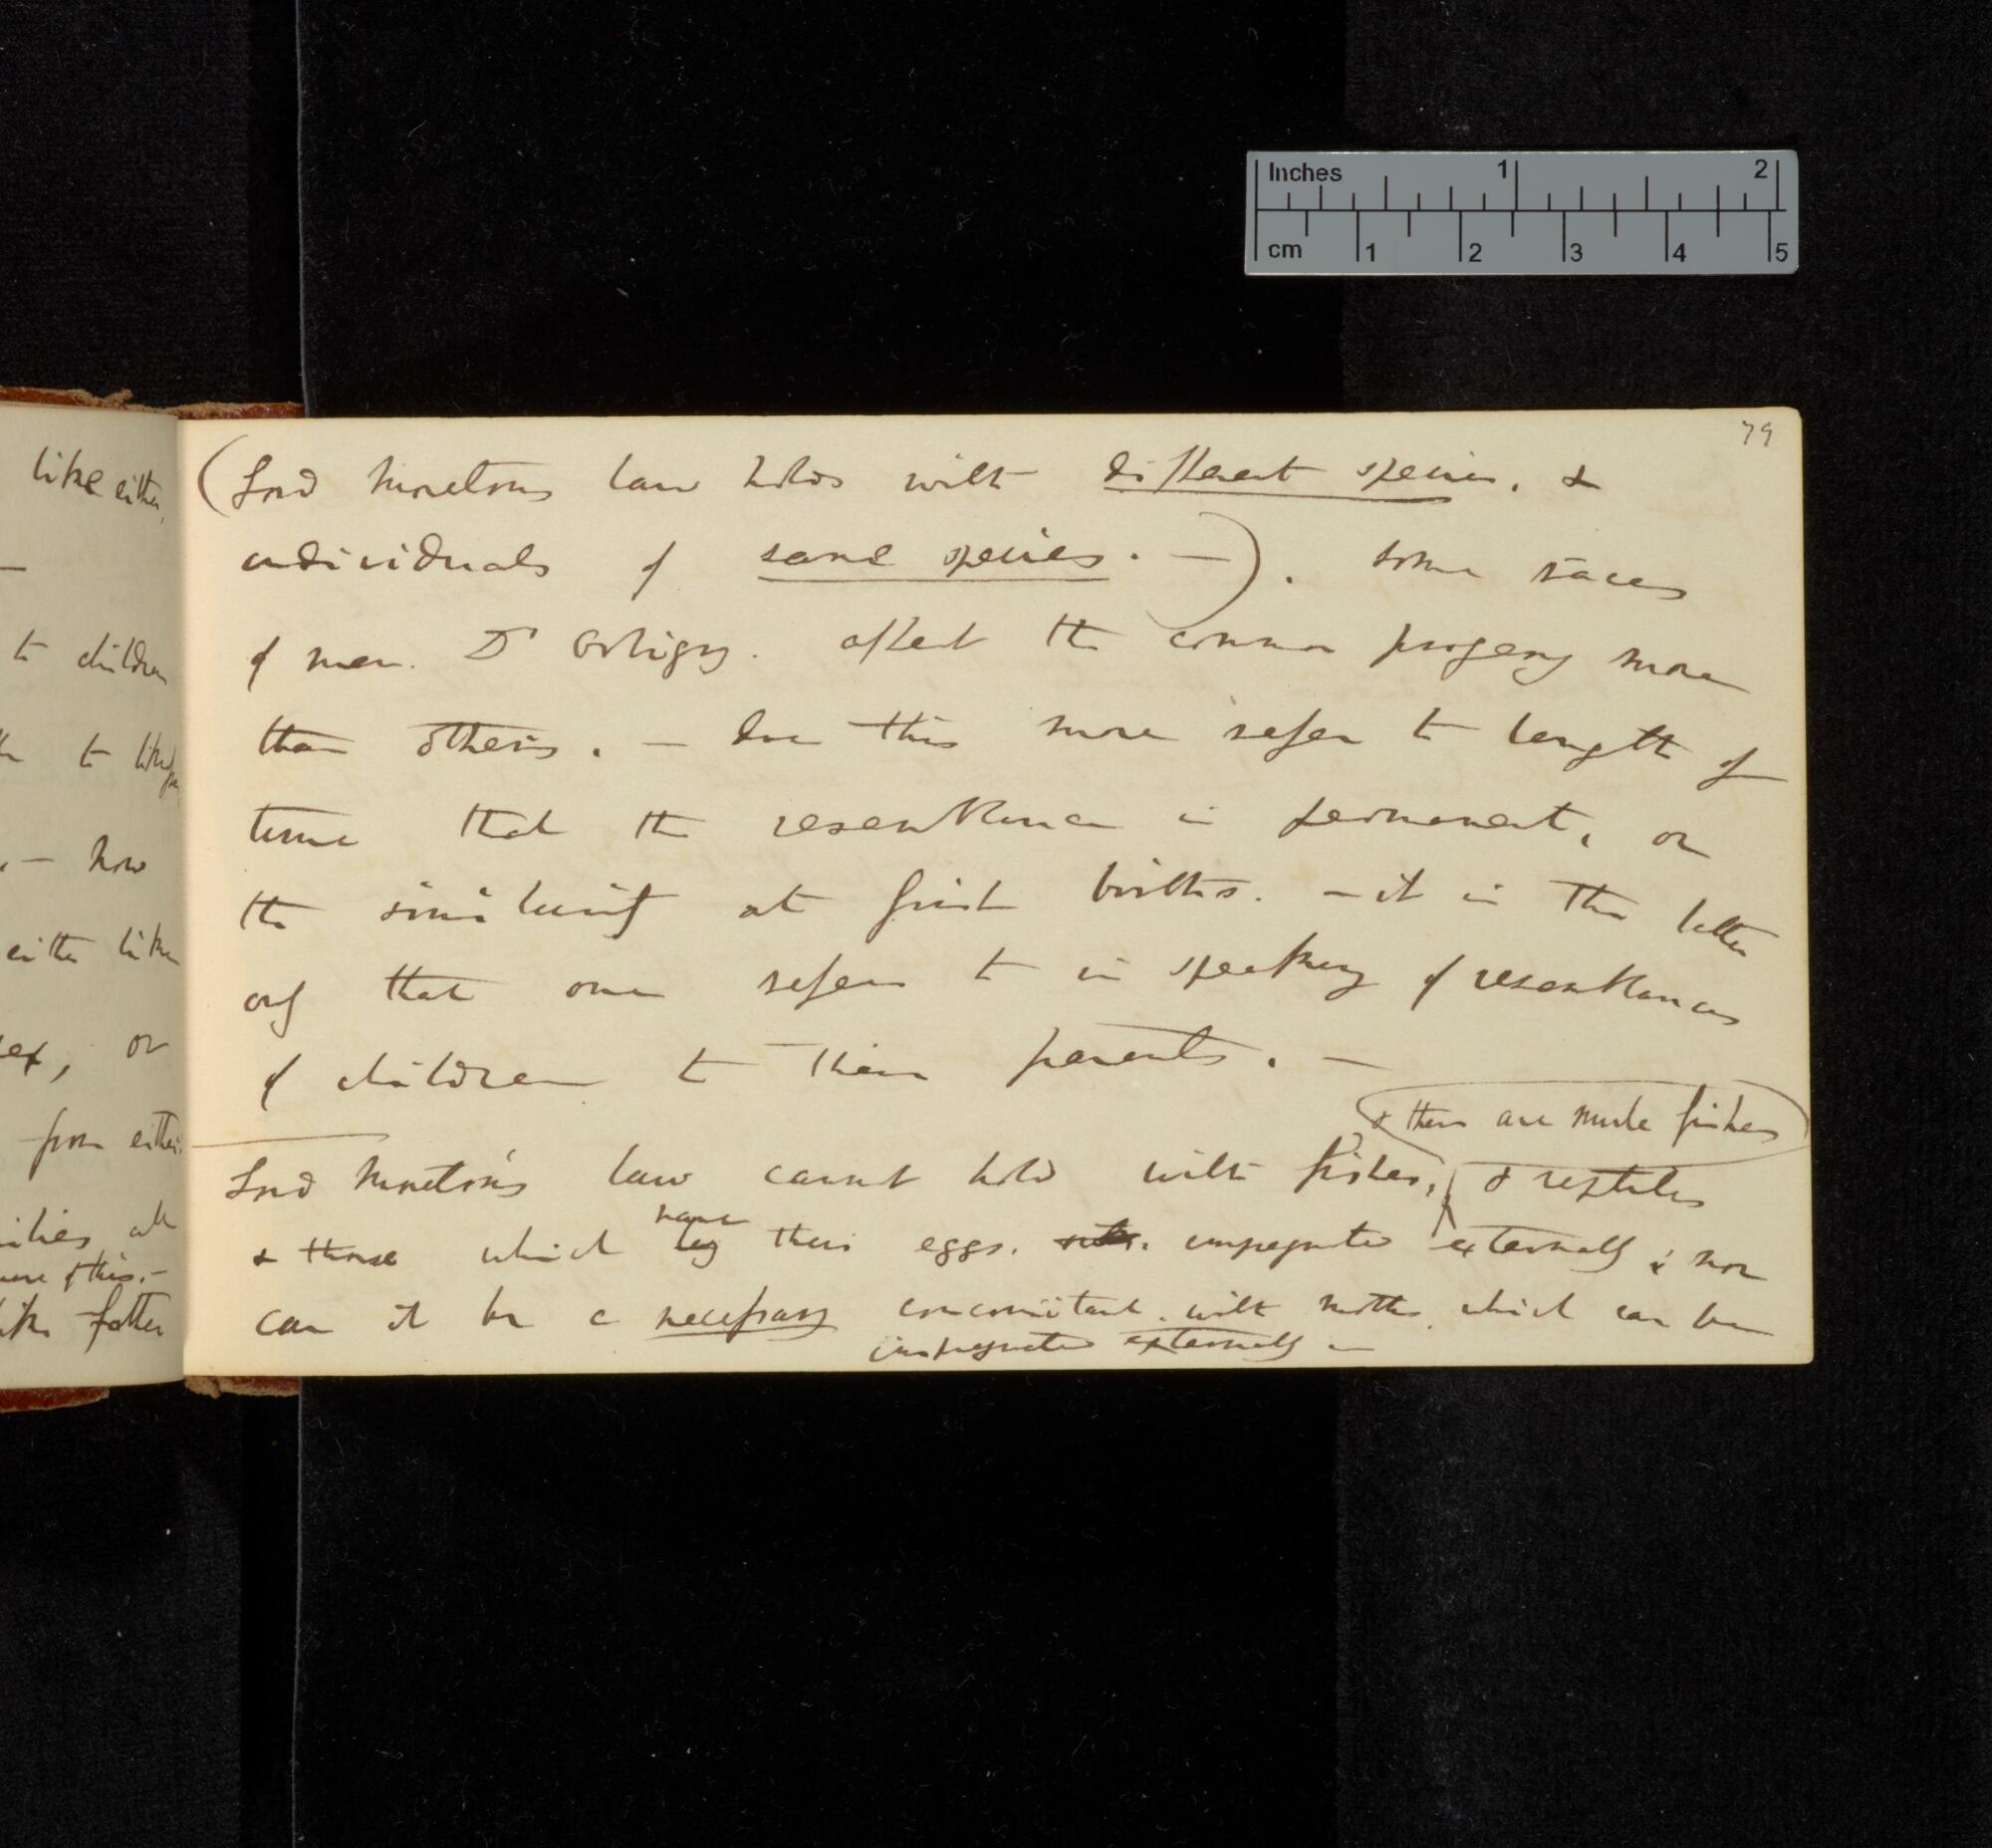 Inches 1 2
cm 1 2 3 4 5
79
like either,
to children
to
— how
either like
sex, or
from either
all
this. —
like father
(Lord Moretons law holds with different species, &
individuals of same species. —). some races
of men. D'Orbigny. affect the common progeny more
than others. — does this more refer to length of
time that the resemblance is permanent, or
the similarity at first births. — it is the latter
only that one refers to in speaking of resemblances
of children to their parents. —
& there are mule fishes
Lord Moreton's law cannot hold with fishes, & reptiles
have
& those which lay their eggs. impregnated externally; nor
can it be a necessary concomitant. with moths. which can be
impregnated externally —